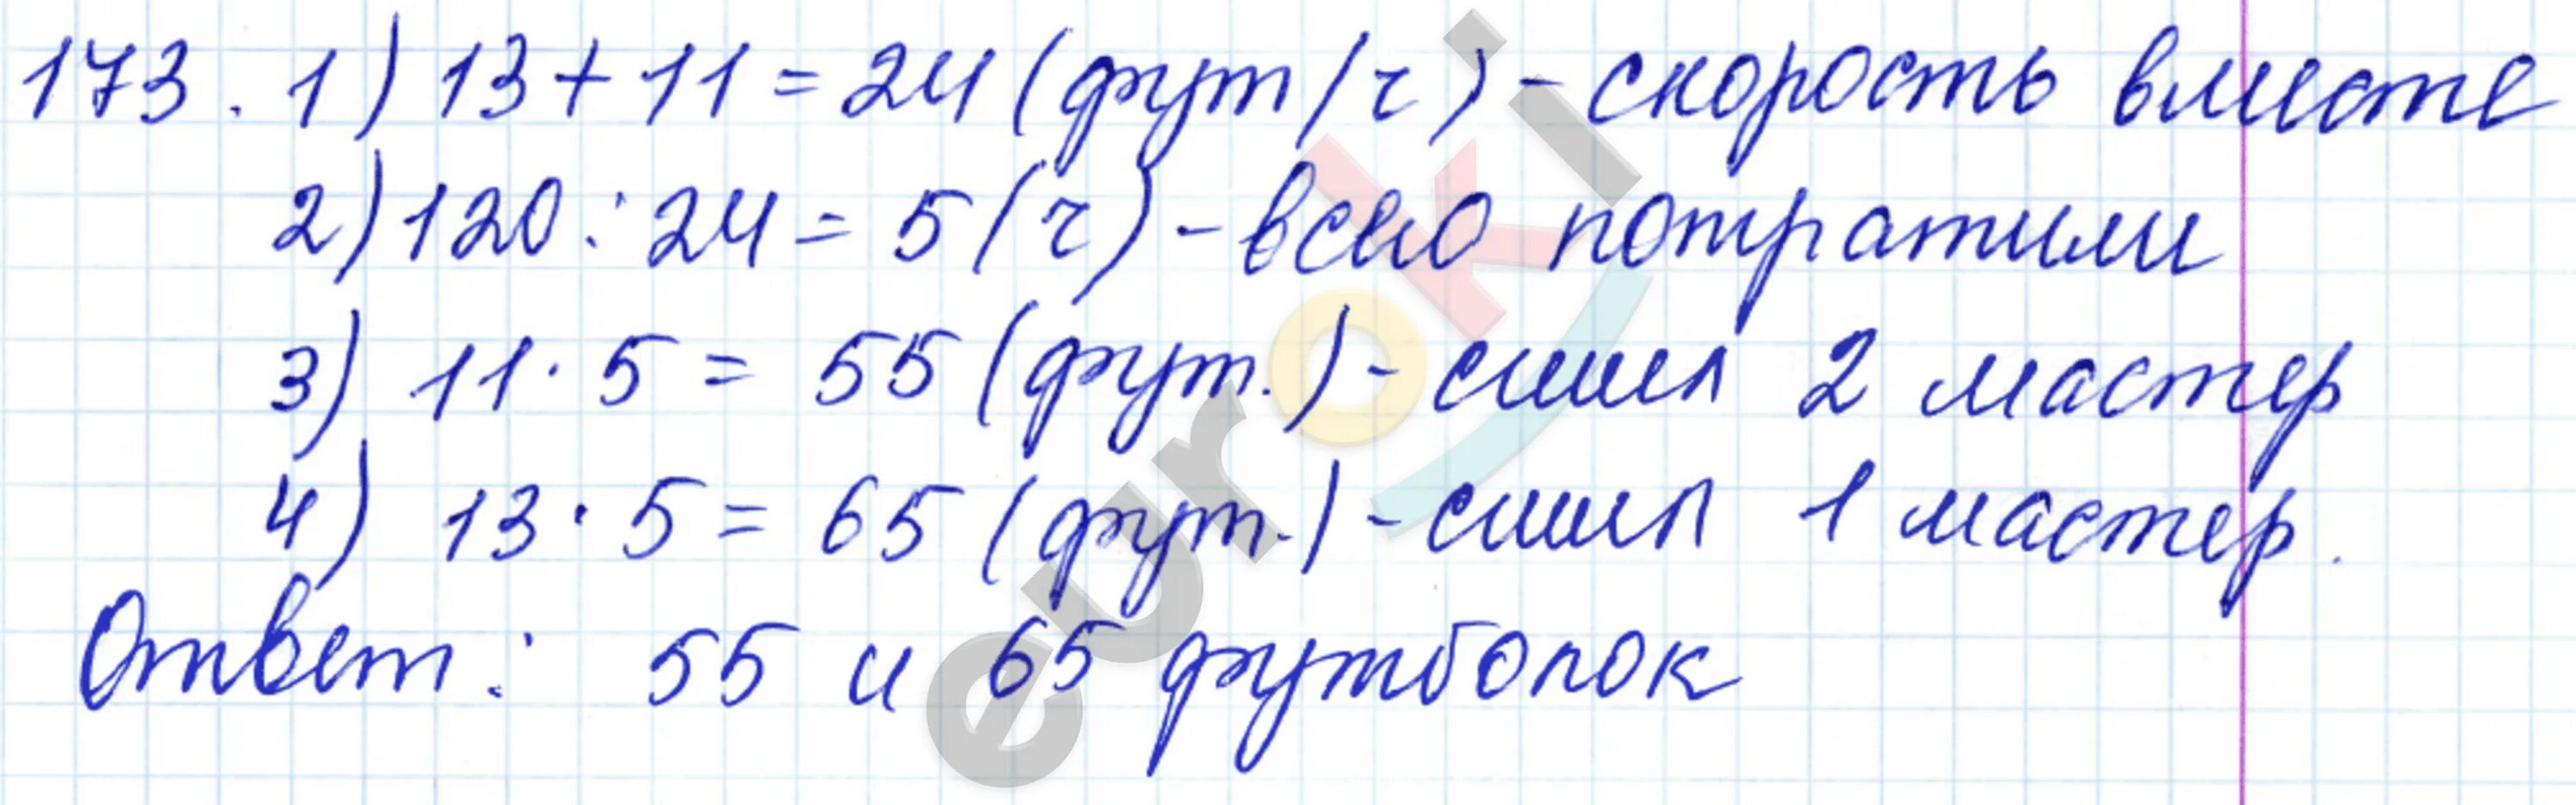 173. 1) 13 + 11 = 24 (фут/ч) - скорость вместе
2) 120 : 24 = 5 (ч) - всего потратили
3) 11 · 5 = 55 (фут.) - сшил 2 мастер
4) 13 · 5 = 65 (фут.) - сшил 1 мастер.
Ответ: 55 и 65 футболок
euroki